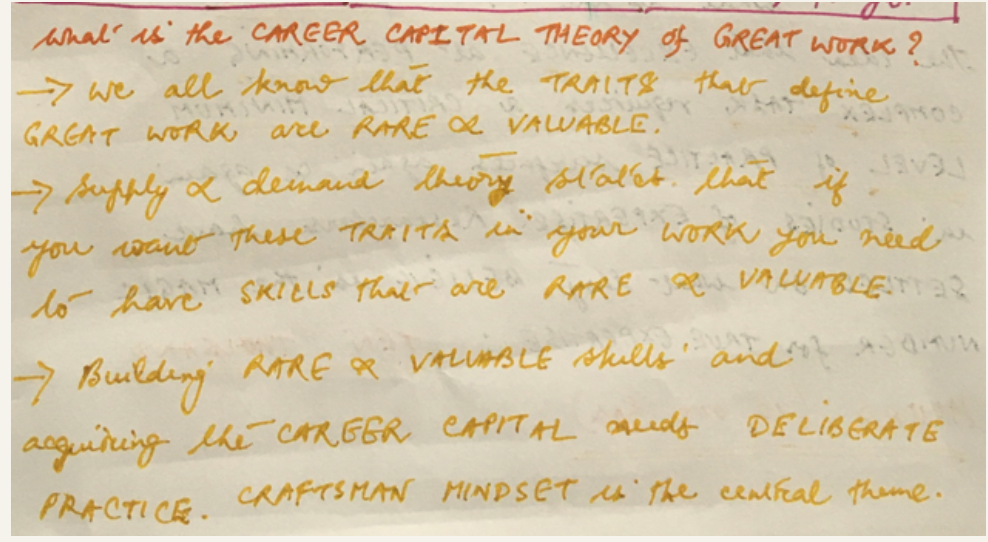 What is the CAREER CAPITAL THEORY of GREAT WORK?
→ We all know that the TRAITS that define
GREAT WORK are RARE & VALUABLE.
→ Supply & demand theory states that if
you want these TRAITS in your WORK you need
to have SKILLS that are RARE & VALUABLE.
→ Building RARE & VALUABLE skills and
acquiring the CAREER CAPITAL needs DELIBERATE
PRACTICE. CRAFTSMAN MINDSET is the central theme.